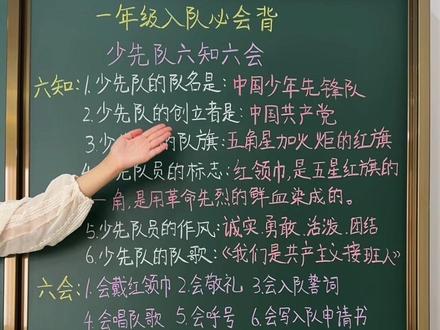 一年级入队必会背
少先队六知六会
六知:1.少先队的队名是:中国少年先锋队
2.少先队的创立者是:中国共产党
3.少 队旗:五角星加火炬的红旗
4. 队员的标志:红领巾,是五星红旗的
一角,是用革命先烈的鲜血染成的。
5.少先队员的作风:诚实.勇敢.活泼.团结
6.少先队的队歌:《我们是共产主义接班人》
六会:1.会戴红领巾 2.会敬礼 3.会入队誓词
4.会唱队歌 5.会呼号 6.会写入队申请书